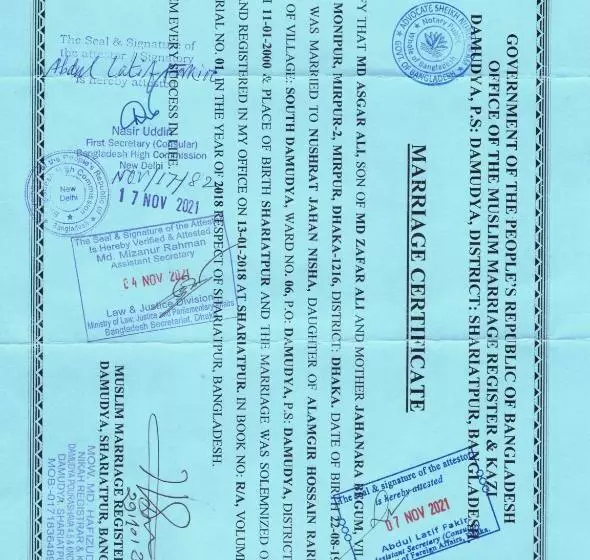 GOVERNMENT OF THE PEOPLE'S REPUBLIC OF BANGLADESH
OFFICE OF THE MUSLIM MARRIAGE REGISTER & KAZI
DAMUDYA, P.S: DAMUDYA, DISTRICT: SHARIATPUR, BANGLADESH
MARRIAGE CERTIFICATE
FY THAT MD ASGAR ALI, SON OF MD ZAFAR ALI AND MOTHER JAHANARA BEGUM, VIL
MONIPUR, MIRPUR-2, MIRPUR, DHAKA-1216, DISTRICT: DHAKA. DATE OF BIRTH 22-08-1
WAS MARRIED TO NUSHRAT JAHAN NISHA, DAUGHTER OF ALAMGIR HOSSAIN RAR
OF VILLAGE: SOUTH DAMUDYA, WARD NO. 06, P.O: DAMUDYA, P.S: DAMUDYA, DISTRICT
H 11-01-2000 & PLACE OF BIRTH SHARIATPUR AND THE MARRIAGE WAS SOLEMNIZED O
ND REGISTERED IN MY OFFICE ON 13-01-2018 AT SHARIATPUR. IN BOOK NO: R/A, VOLUM
RIAL NO. 01, IN THE YEAR OF 2018 RESPECT OF SHARIATPUR, BANGLADESH.
EM EVERY SUCCESS IN LIFE.
MUSLIM MARRIAGE REGISTER
DAMUDYA, SHARIATPUR, BANG
MOW. MD. HAFIZUL
NIKAH REGISTRAR &
ADVOCATE SHEIKH
Notary Public
Whole of Bangladesh
GOVT. OF BANGLADESH
The Seal & Signature of
the attestor / Signatory
Abdul Latif Fakir
Is hereby attested
Nasir Uddin
First Secretary (Consular)
Bangladesh High Commission
New Delhi
NOV/17/82
17 NOV 2021
New
Delhi
The Seal & Signature of the Attest
Is Hereby Verified & Attested
Md. Mizanur Rahman
Assistant Secretary
04 NOV 2021
Law & Justice Division
Ministry of Law, Justice and Parliamentary Affairs
Bangladesh Secretariat, Dhaka
The seal & signature of the attestor
is hereby attested
07 NOV 2021
Abdul Latif Fakir
Assistant Secretary (Consular)
of Foreign Affairs,